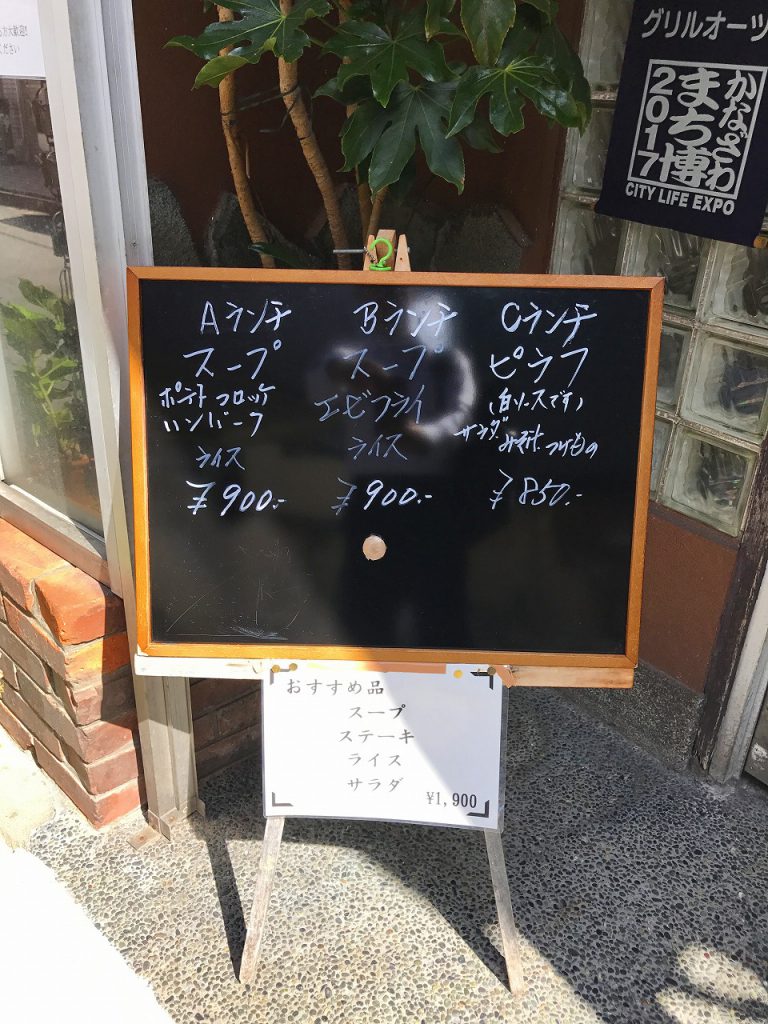 も大歓迎!
ください
グリルオーツ
かなざわ
まち博
2017
CITY LIFE EXPO
Aランチ
スープ
ポテトコロッケ
ハンバーグ
ライス
¥900.-
Bランチ
スープ
エビフライ
ライス
¥900.-
Cランチ
ピラフ
(白ソースです)
サラダ みそ汁 つけもの
¥850.-
おすすめ品
スープ
ステーキ
ライス
サラダ
¥1,900